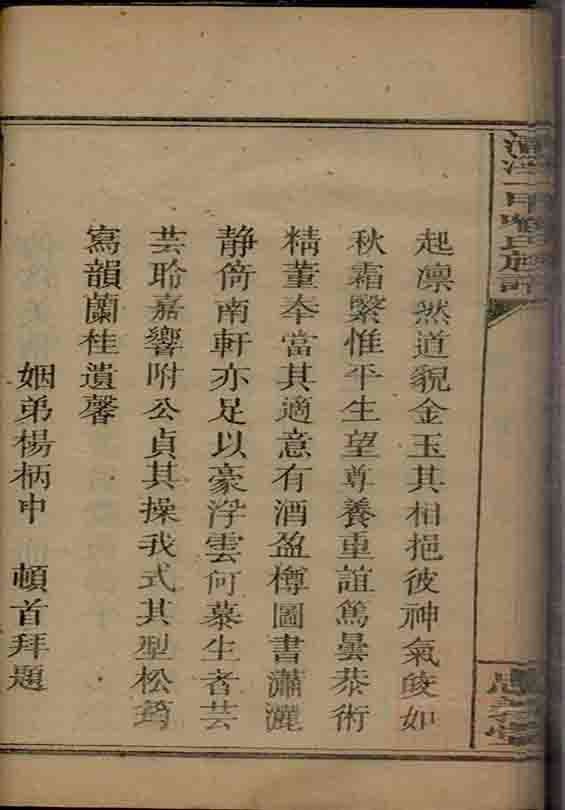 起凛然道貌金玉其相挹彼神氣皎如
秋霜繄惟平生望尊養重誼篤曇恭術
精董奉當其適意有酒盈樽圖書瀟灑
静倚南軒亦足以豪浮雲何慕生者芸
芸聆嘉響附公貞其操我式其型松筠
寫韻蘭桂遺馨
姻弟楊柄申 頓首拜題